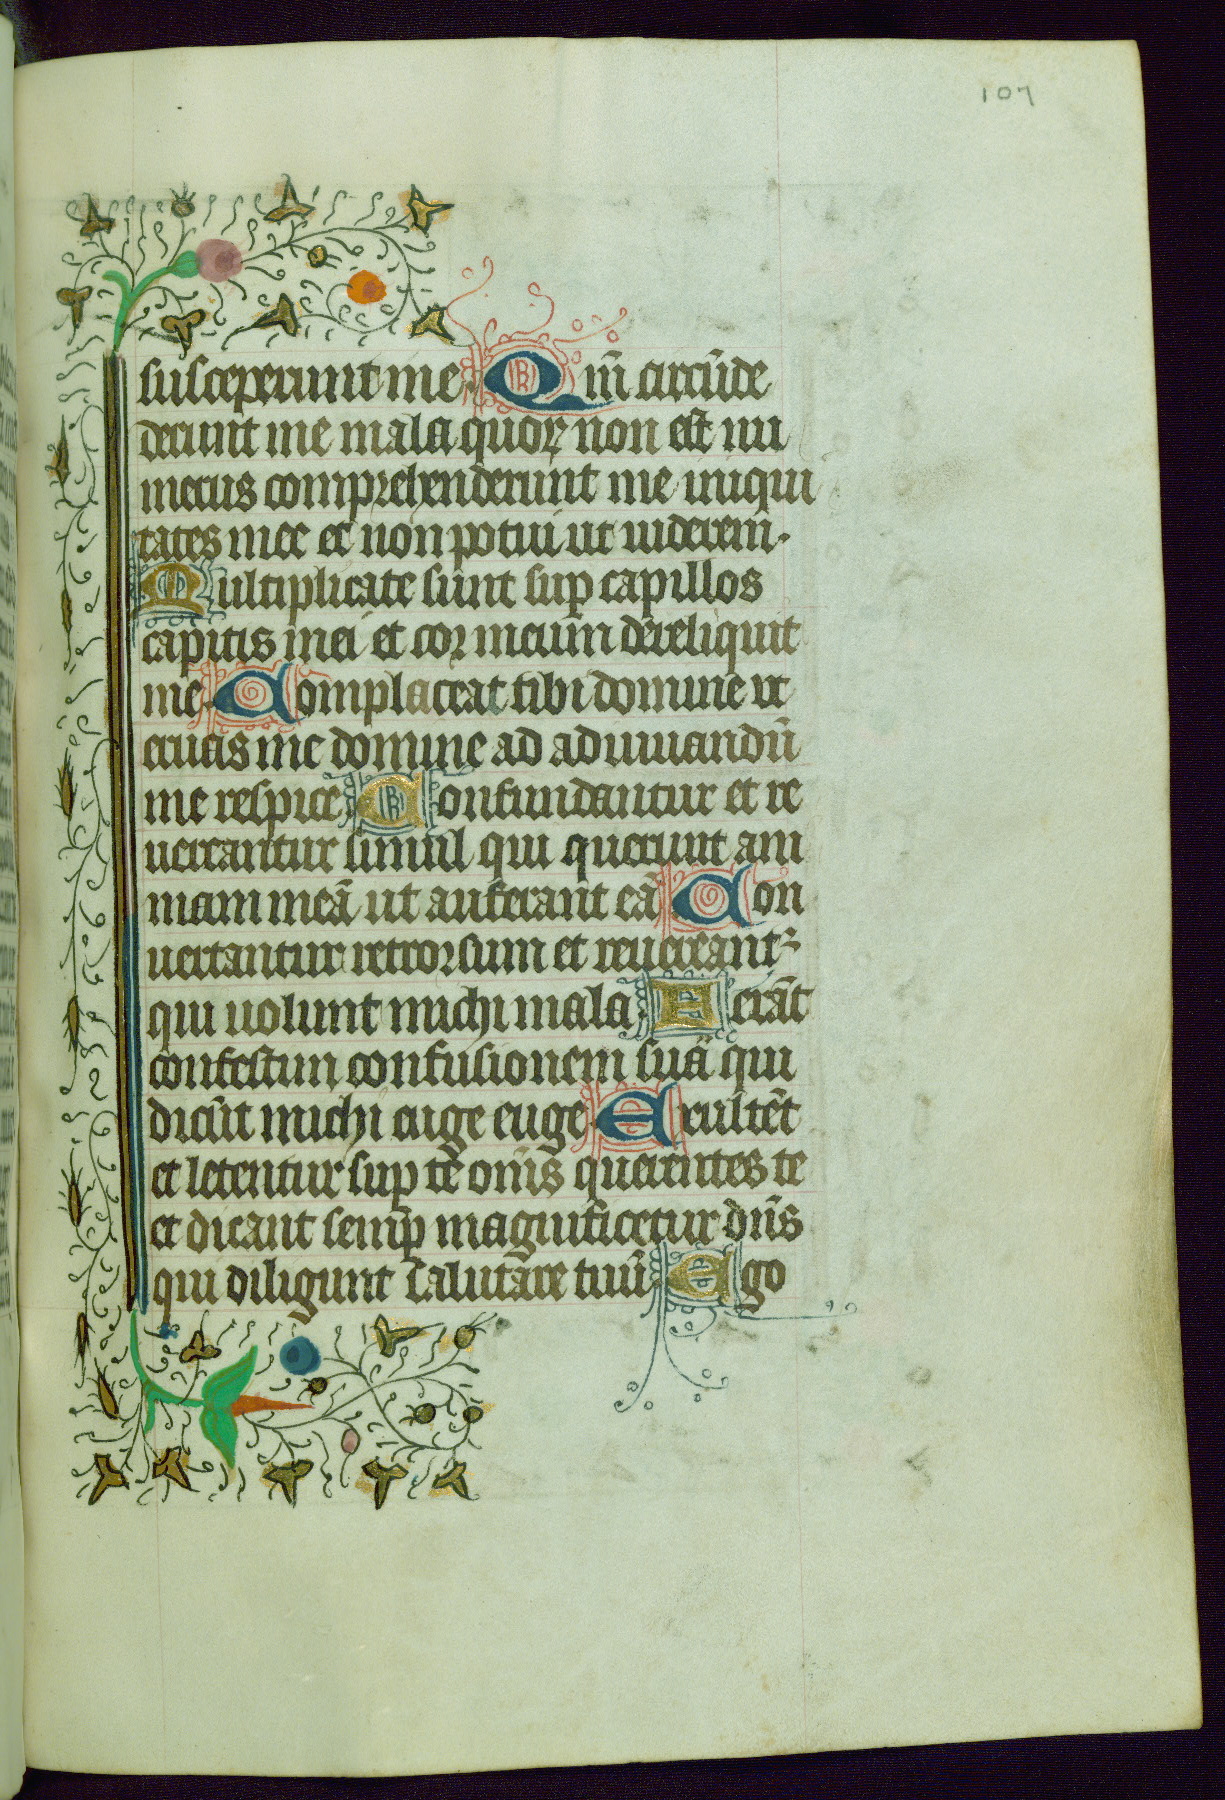 107
susceperunt me Qm̄ circūde
derunt me mala quoꝝ non est nu
merus comprehenderunt me iniqui
tates mee et non potui ut viderem·
Multiplicate sunt suꝑ capillos
capitis mei et cor meum dereliquit
me Complaceat tibi domine ut
eruas me domine ad adiuuandū
me respice Confundantur et re
uereantur simul qui querunt ani
mam meā ut auferant eā Con
uertantur retrorsum et reuereant᷑
qui uolunt michi mala Ferāt
confestim confusionem suā qui
dicūt michi euge euge Exultēt
et letentur suꝑ te om̄s querentes te
et dicant semꝑ magnificetur dn̄s
qui diligunt salutare tuū Ego